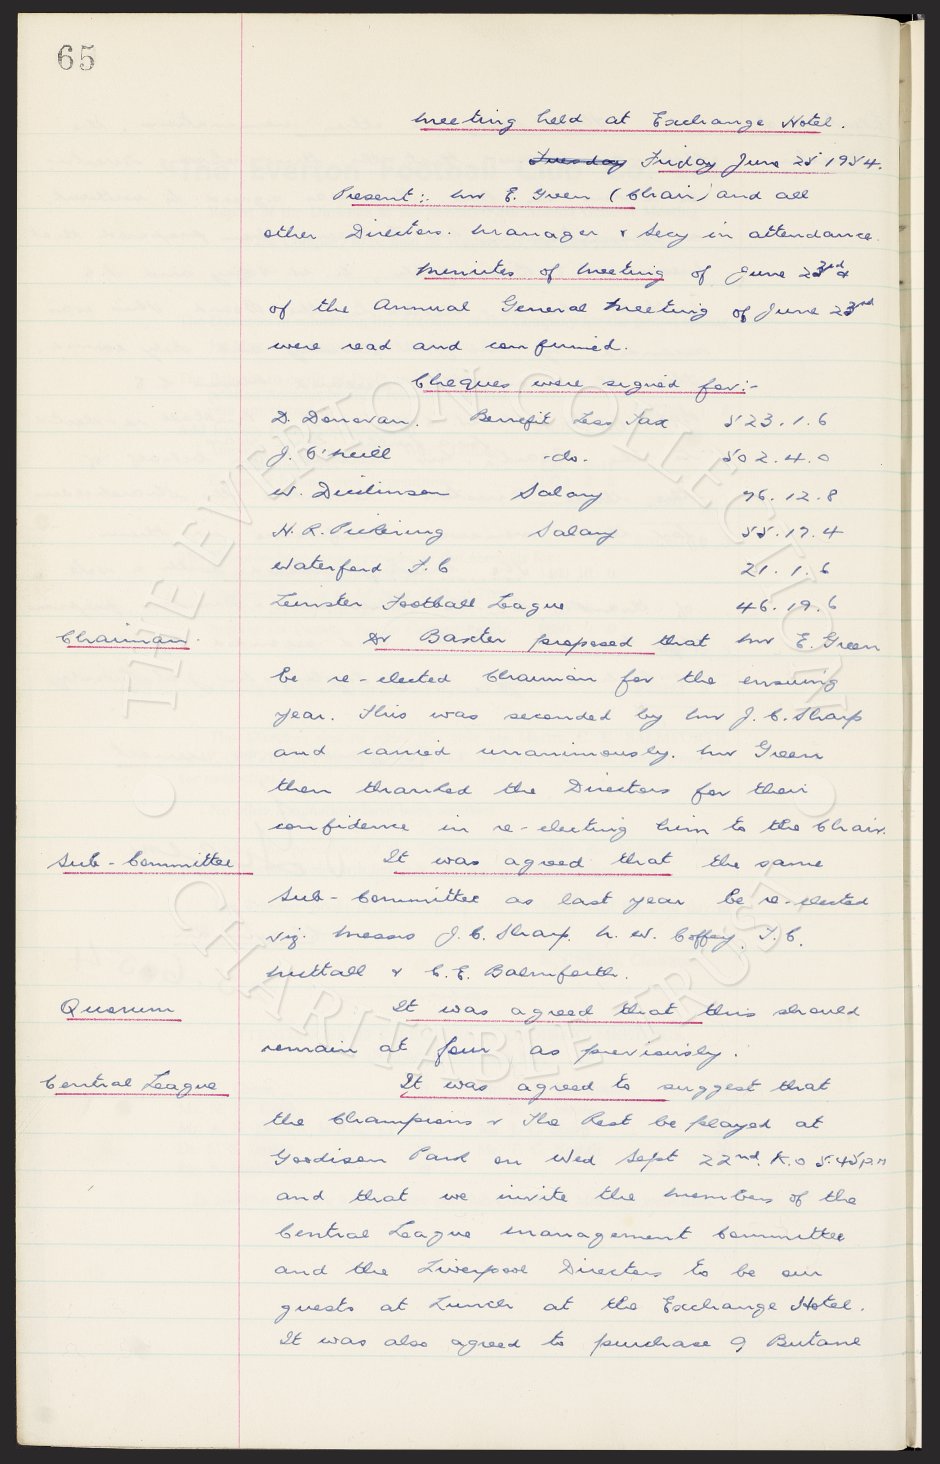 65
Meeting held at Exchange Hotel.
Tuesday Friday June 25 1954.
Present:- Mr E. Green (Chair) and all
other Directors. Manager & Secy in attendance.
Minutes of Meeting of June 23rd &
of the Annual General Meeting of June 23rd
were read and confirmed.
Cheques were signed for:-
D. Donovan. Benefit Less Tax 523.1.6
J. O'Neill -do. 502.4.0
W. Dickinson Salary 76.12.8
H. R. Pickering Salary 55.17.4
Waterford F.C 21.1.6
Leinster Football League 46.19.6
Chairman. Dr Baxter proposed that Mr E. Green
be re-elected Chairman for the ensuing
year. This was seconded by Mr J. C. Sharp
and carried unanimously. Mr Green
then thanked the Directors for their
confidence in re-electing him to the Chair.
Sub-Committee It was agreed that the same
Sub-Committee as last year be re-elected
viz. Messrs J. C. Sharp. N. W. Coffey. F. C.
Nuttall & C. E. Balmforth.
Quorum It was agreed that this should
remain at four as previously.
Central League It was agreed to suggest that
the Champions v The Rest be played at
Goodison Park on Wed Sept 22nd. K.O 5.45 p.m
and that we invite the Members of the
Central League Management Committee
and the Liverpool Directors to be our
guests at Lunch at the Exchange Hotel.
It was also agreed to purchase 9 Butane
© THE EVERTON COLLECTION CHARITABLE TRUST